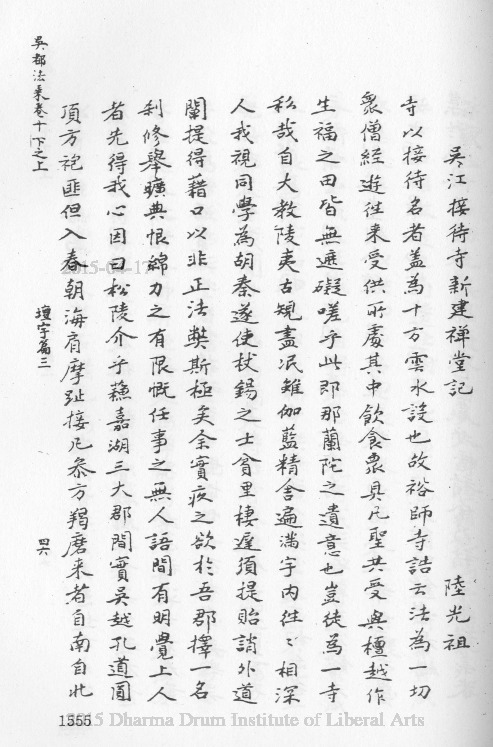 吳江接待寺新建禅堂記 陸光祖
寺以接待名者盖為十方雲水設也故裕師寺誥云法為一切
衆僧經遊徃来受供所處其中飲食衆具凡聖共受與檀越作
生福之田皆無遮礙嗟乎此即那蘭陀之遺意也豈徒為一寺
私哉自大教陵夷古規盡泯雖伽藍精舍遍满宇内徃〻相深
人我視同學為胡秦遂使杖錫之士窅里棲遲須提貽誚外道
闡提得藉口以非正法獘斯極矣余實疚之欲於吾郡擇一名
刹修舉曠典恨綿力之有限慨任事之無人語間有明覺上人
者先得我心因曰松陵介乎蘇嘉湖三大郡間實吳越孔道圓
頂方袍匪但入春朝海肩摩趾接凡叅方羯磨来者自南自北
吳都法乗卷十下之上
壇宇篇三
四六
1555
2015-04-17
2015 Dharma Drum Institute of Liberal Arts